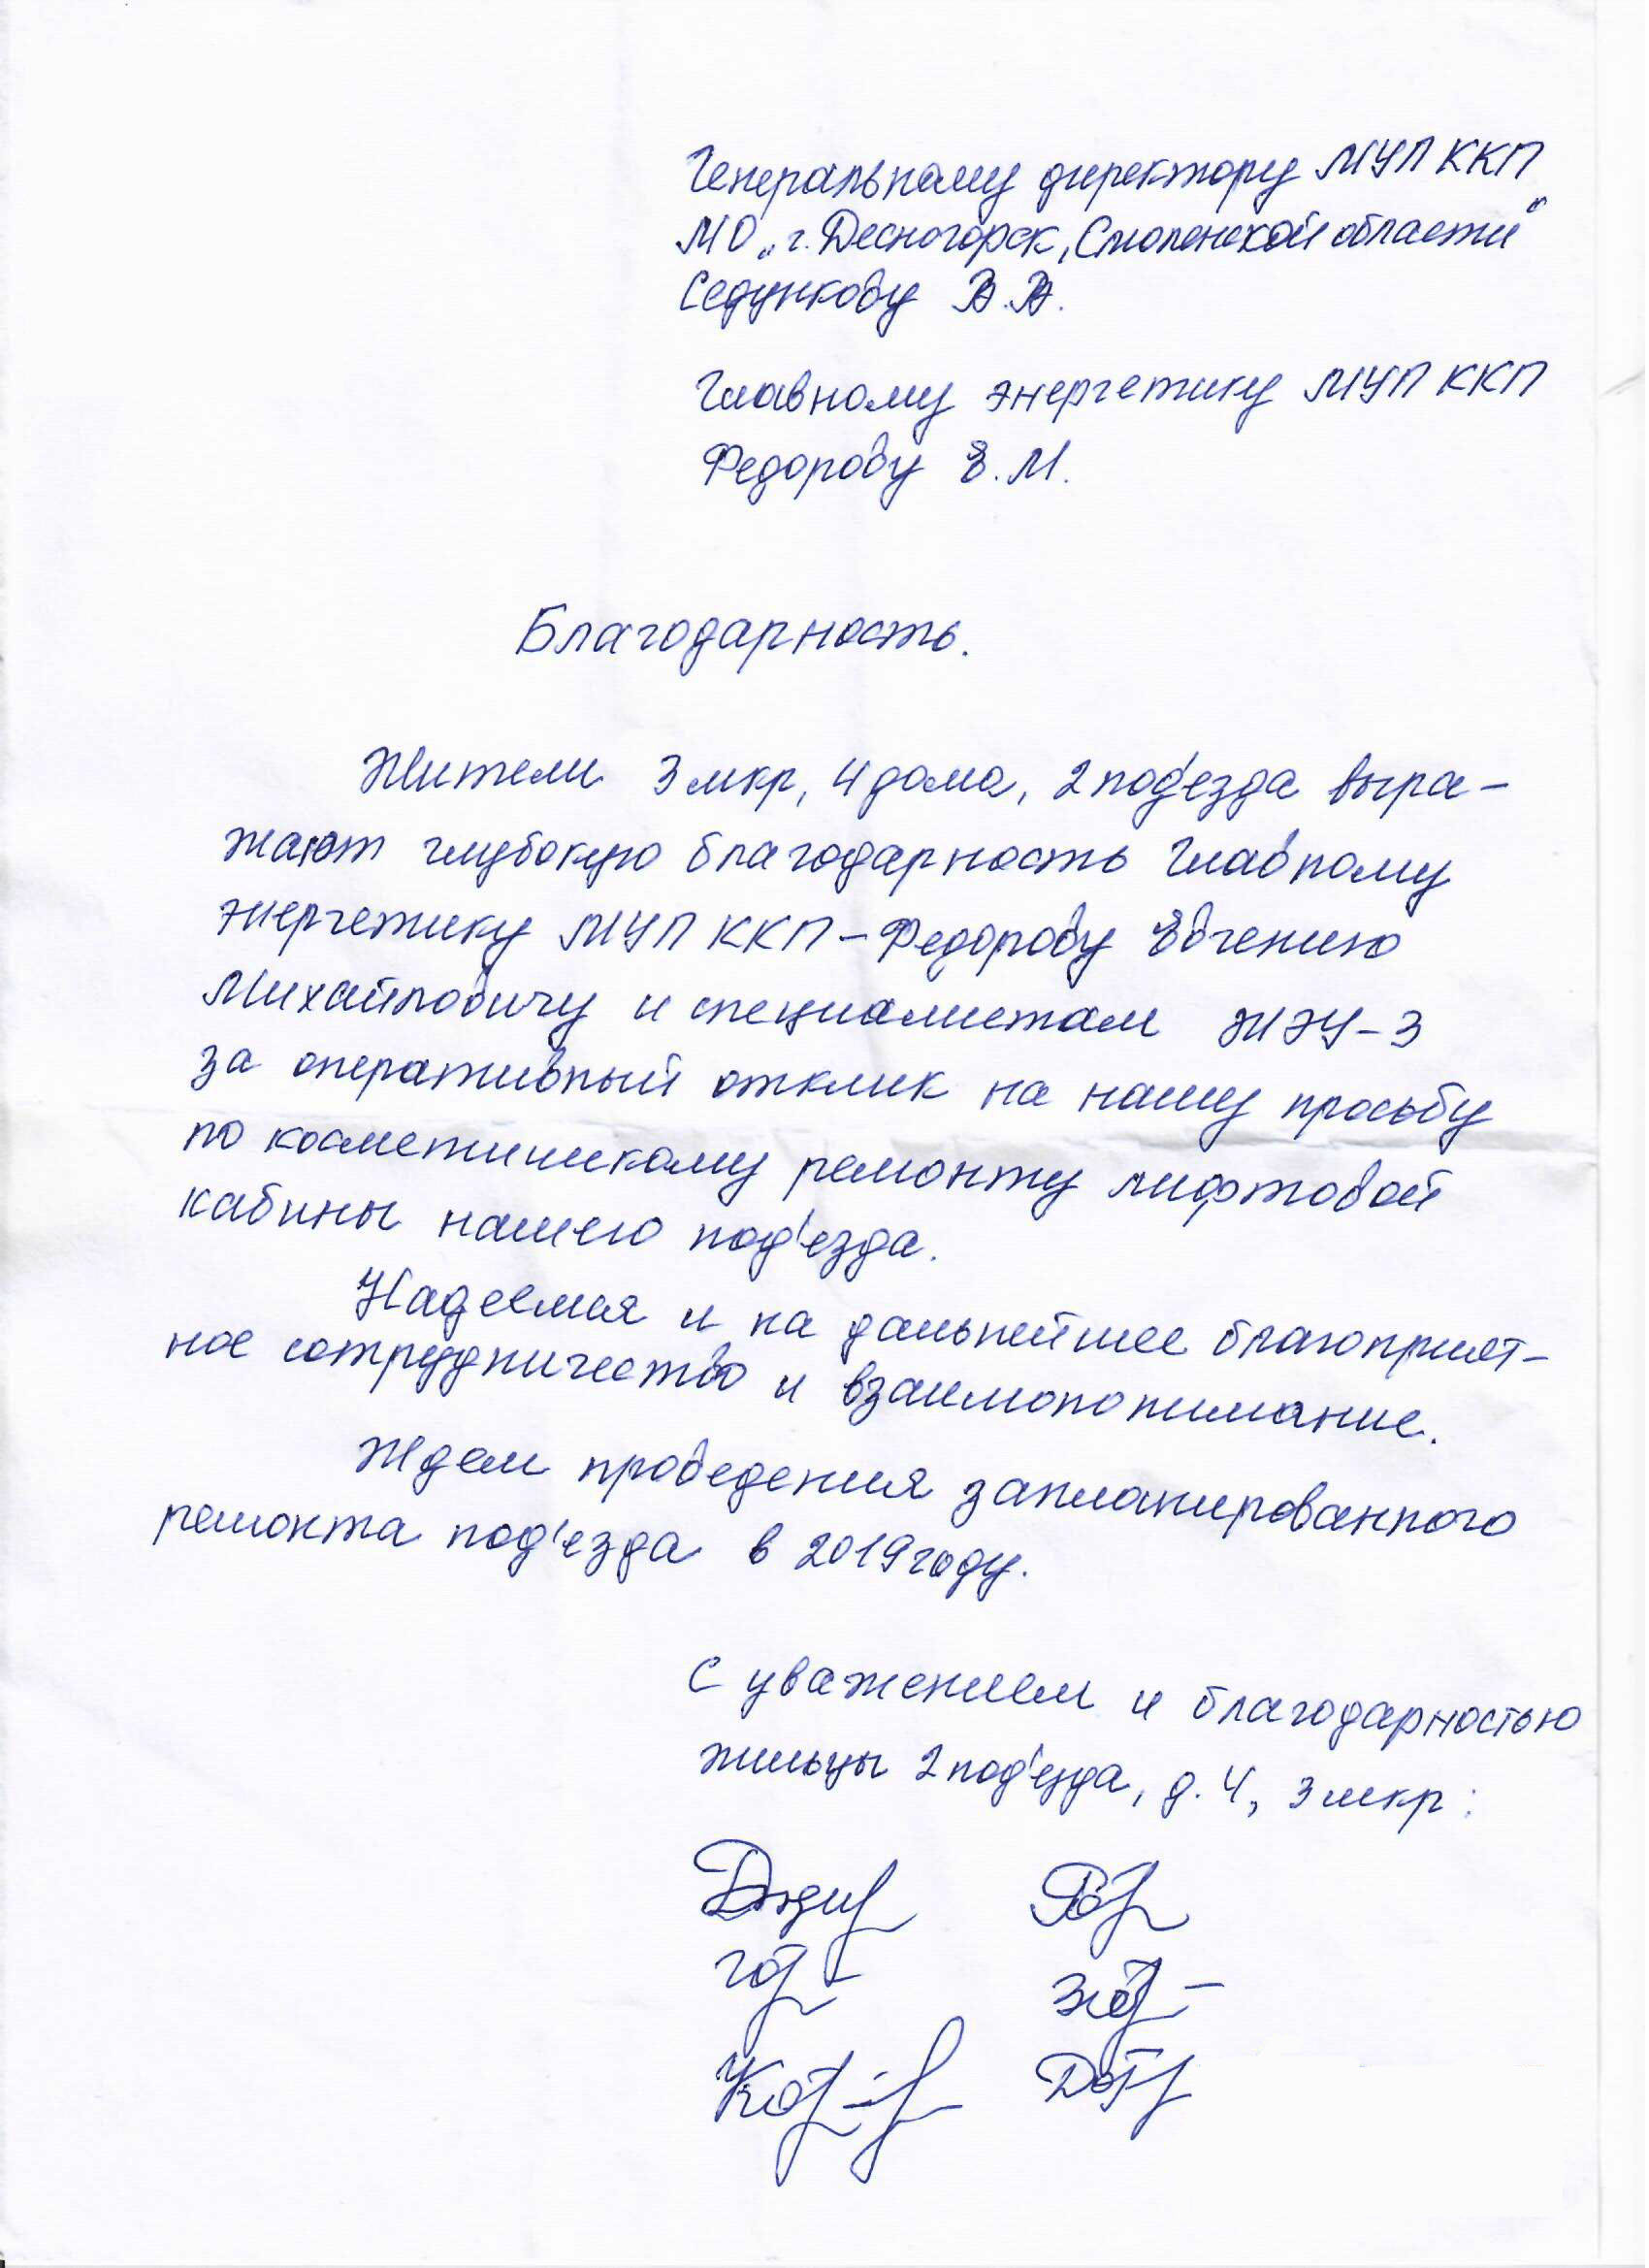 Генеральному директору МУП ККП
МО „г. Десногорск, Смоленской области"
Седункову В.В.
Главному энергетику МУП ККП
Федорову Е.М.
Благодарность.
Жители 3 мкр, 4 дома, 2 под'езда выра-
жают глубокую благодарность Главному
энергетику МУП ККП – Федорову Евгению
Михайловичу и специалистам ЖЭУ-3
за оперативный отклик на нашу просьбу
по косметическому ремонту лифтовой
кабины нашего под'езда.
Надеемся и на дальнейшее благоприят-
ное сотрудничество и взаимопонимание.
Ждем проведения запланированного
ремонта под'езда в 2019 году.
С уважением и благодарностью
жильцы 2 под'езда, д. 4, 3 мкр: